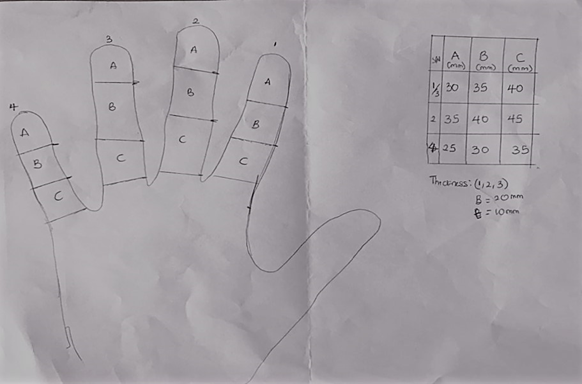 2
3
1
4
A
A
A
A
B
B
B
B
C
C
C
C
S/N A (mm) B (mm) C (mm)
1/3 30 35 40
2 35 40 45
4 25 30 35
Thickness: (1,2,3)
B = 20mm
= 10mm